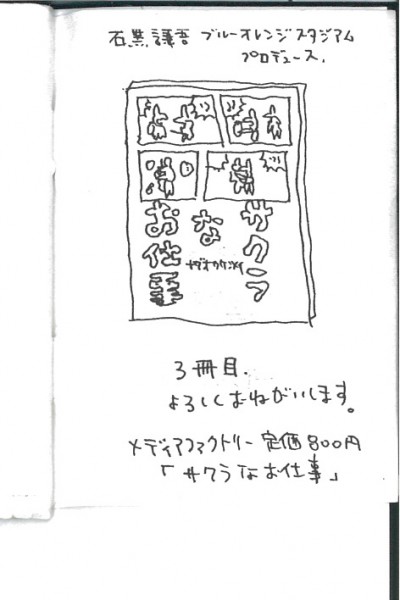 石黒謙吾 ブルーオレンジスタジアム
プロデュース.
サクラ
な
お仕事
3冊目.
よろしくおねがいします。
メディアファクトリー 定価800円
「サクラなお仕事」